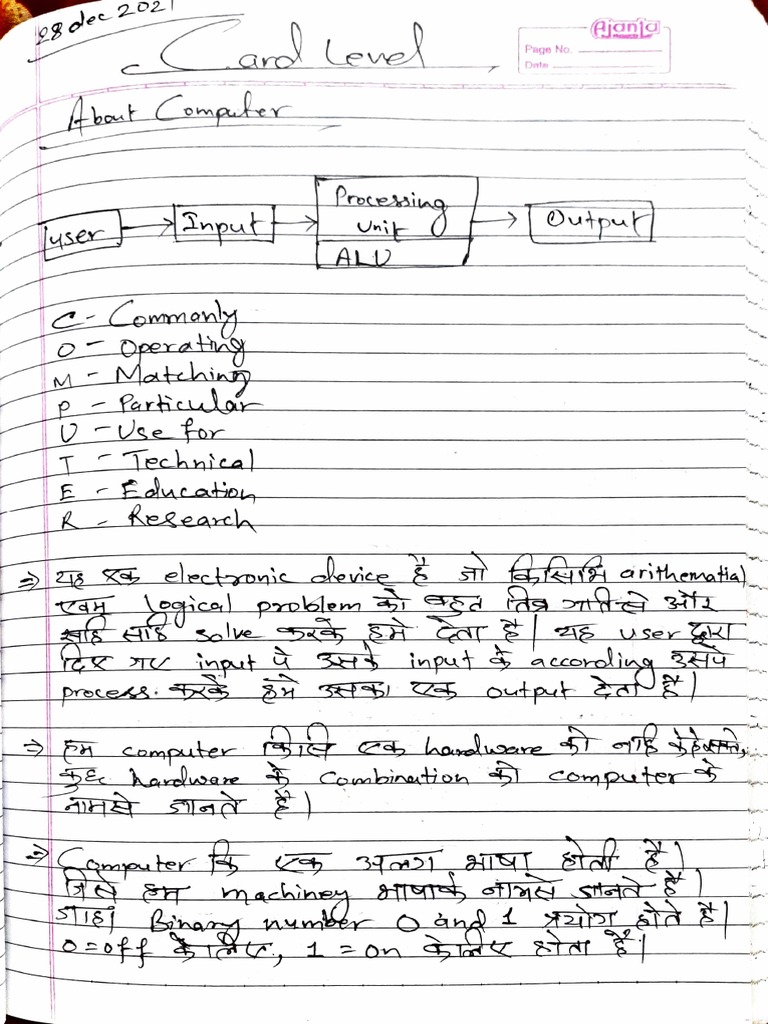 28 dec 2021
Card Level
Ajanta
Page No.
Date
About Computer
user
Input
Processing
Unit
ALU
Output
C - Commanly
O - Operating
M - Matching
P - Particular
U - Use for
T - Technical
E - Education
R - Research
⇒ यह एक electronic device है जो किसिभि arithematial
एवम logical problem को बहुत तिव्र गतिसे और
सहि साहि solve करके हमे देता है| यह user द्वारा
दिए गए input पे उसके input के according उसपे
process. करके हमे उसका एक output देता है|
⇒ हम computer किसि एक hardware को नाहि केहे सकते,
कुछ hardware के combination को computer के
नामसे जानते है|
⇒ Computer कि एक अलग भाषा होती है|
जिसे हम machiney भाषाके नामसे जानते है|
जाहां Binary number 0 and 1 प्रयोग होते है|
0=off के लिए, 1 = on केलिए होता है|